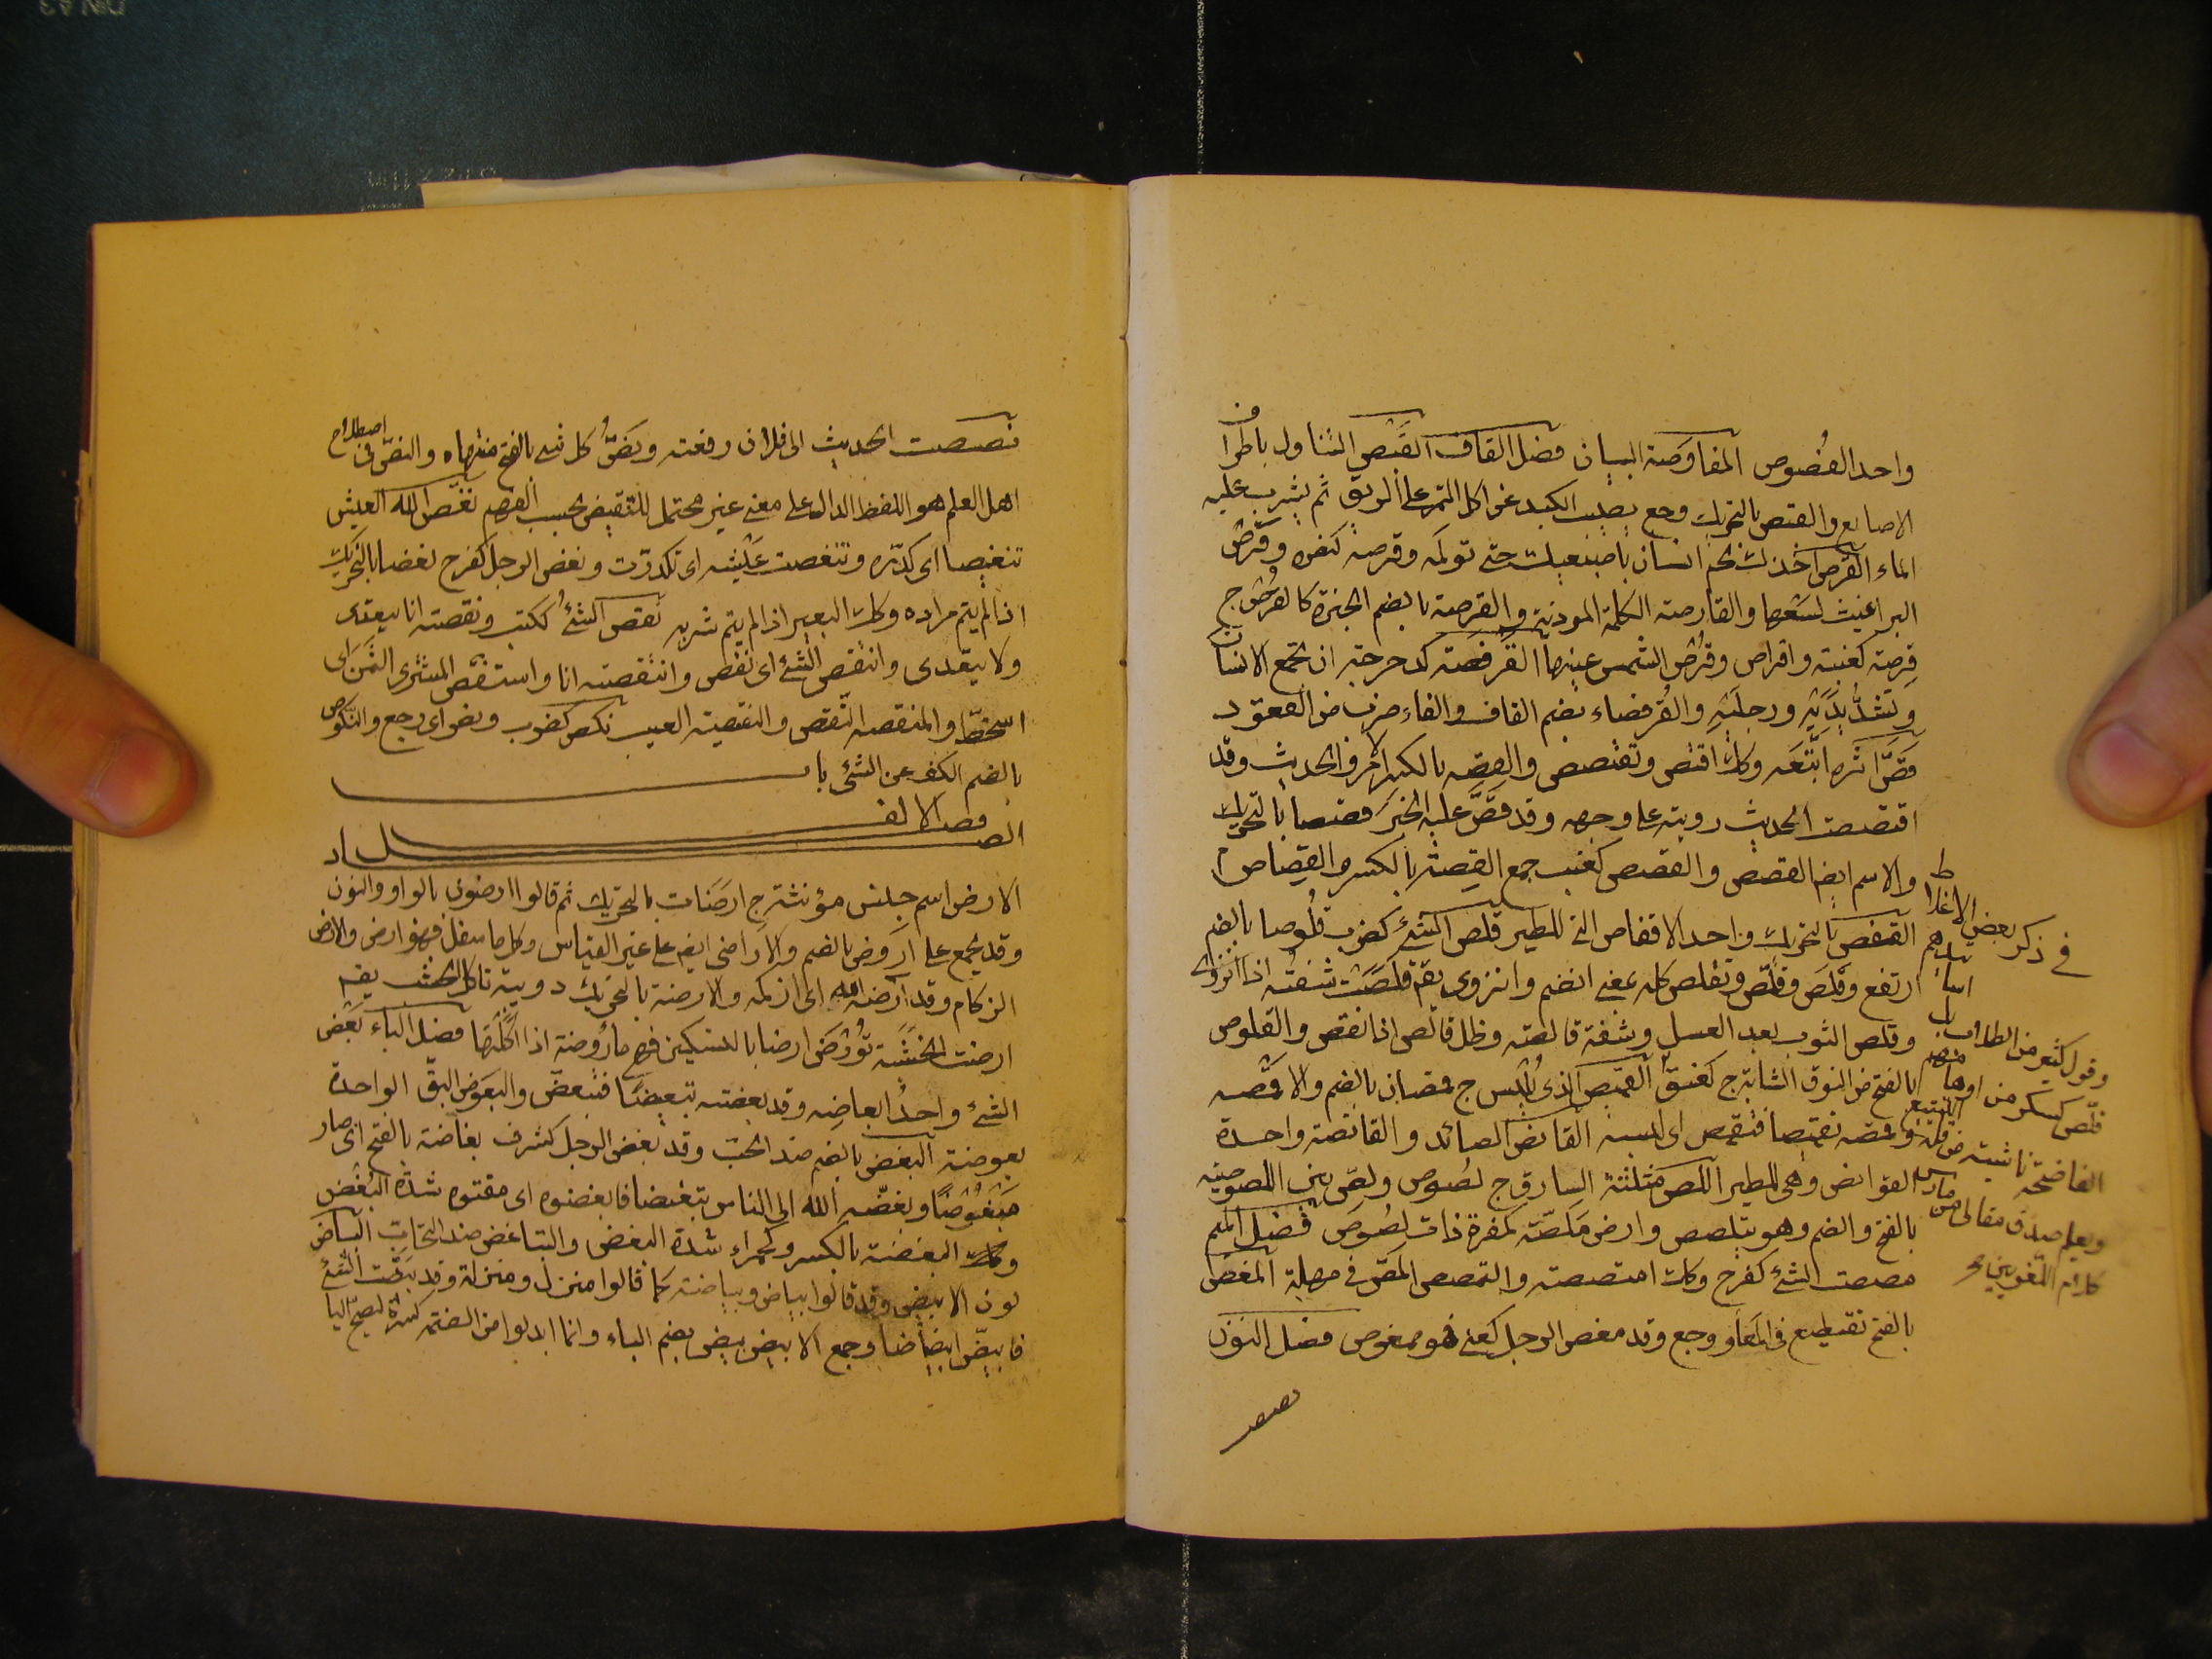 واحد الفصوص المفاوَصَة البيان فصل القاف القَبَص التناول باطراف
الاصابع والقبص بالتحريك وجع يصيب الكبد عن اكل التمر على الريق ثم يشرب عليه
الماء القرص اخذك لحم انسان باصبعيك حتى تولمه وقرصه كنصره وقَرْص
البراغيث لسَعُها والقارصة الكلمة الموذية والقرصة بالضم الخبزة كالقرص ج
قرصة كعنبة واقراص وقُرْص الشمس عينها القَرفَصَة كدحرجة ان تجمع الانسان
وتَشُدَّ يدَيْهِ ورجلَيْهِ والقُرفصاء بضم القاف والفاء ضرب من القعود
قصَّ اثره اتَّبَعَه وكك اقتص وتقصص والقصه بالكسر الامر والحديث وقد
اقتصصت الحديث رويته على وجهه وقد قَصَّ عليه الخبَرَ قصصا بالتحريك
والاسم ايض القصص والقصص كعنب جمع القِصة بالكسر والقِصاص
القفص بالتحريك واحد الاقفاص التى للطير قلص الشئ كضرب قُلُوصا بالضم
ارتفع وقَلَصَ وقلّص وتقلص كله بمعنى انضم وانزوى يقم قلَصَت شفتُه اذا انزوى
وقلص الثوب بعد الغسل وشفة قالصة وظل قالص اذا نقص والقلوص
بالفتح من النوق الشابة ج كعنق القميص الذى يُلبس ج قمصان بالضم والاقمصه
وقمصه تقميصا فتقمص اى لبسه القانص الصائد والقانصة واحدة
القوانص وهى للطير اللص مثلثة السارق ج لصوص ولص بين اللصوصية
بالفتح والضم وهو يتلصص وارض مَلَصَّة كمفرة ذات لصُوص فصل الميم
مصصت الشئ كفرح وكك امتصصته والتمصص المصّ فى مهلة المغص
بالفتح تقطيع فى المعا ووجع وقد مغص الرجل كعنى فهو ممغوص فصل النون
نصص
فى ذكر بعض الاغلاط
وقول كثير من الطلاب
قلّص كسكر من اوهامهم
الفاضحة ناشية من قلة التتبع
ويعلم صدق مقالى من مارس
كلام اللغويين
نصصت الحديث الى فلان رفعته ونَصُّ كل شى بالفتح منتهاه والنصّ فى اصطلاح
اهل العلم هو اللفظ الدال على معنى غير محتمل للنقيض بحسب الفهم نغّص الله العيش
تنغيصا اى كدّره وتنغصت عَيْشه اى تكدرت ونغص الرجل كفرح نغصا بالتحريك
اذا لم يتم مراده وكك البعير اذا لم يتم شربه نَقص الشئُ ككتب ونقصته انا يتعدى
ولا يتعدى وانتقص الشئ اى نقص وانتقصته انا واستنقص المشترى الثمَنَ اى
استحطّ والمنقصه النقص والنقيصة العيب نكص كضرب ونصر اى رجع والنكوص
بالضم الكف عن الشئ باب
الضاد فصل الالف
الارض اسم جنس مؤنثة ج ارضَات بالتحريك ثم قالوا ارضون بالواو والنون
وقد يجمع على اروض بالضم والاراضى ايض على غير القياس وكل ما سفل فهو ارض والارض
الزكام وقد آرضه الله اى ازكمه والارضة بالتحريك دويبة تاكل الخشب يقم
ارضت الخشبة تُوْرَض ارضا بالتسكين فهى مأروضة اذا اكلَتها فصل الباء بَعْض
الشئ واحدُ ابعاضِه وقد بعضته تبعيضًا فتبعض والبعوض البق الواحدة
بعوضة البغض بالضم ضد الحب وقد بغض الرجل كشرف بغاضة بالفتح اى صار
مَبغُوضًا وبغضه الله الى الناس تبغيضا فابغضوه اى مقتوه شدة البُغْض
وكك البغضة بالكسر وكحمراء شدة البغض والتباغض ضد التحاب البياض
لون الابيض وقد قالوا بياض وبياضة كما قالوا منزل ومنزلة وقد بَيَّضت الشئ
فابيضّ ابيضاضا وجمع الابيض بيض بضم الباء وانما ابدلوا من الضمة كسرة ليصح اليا